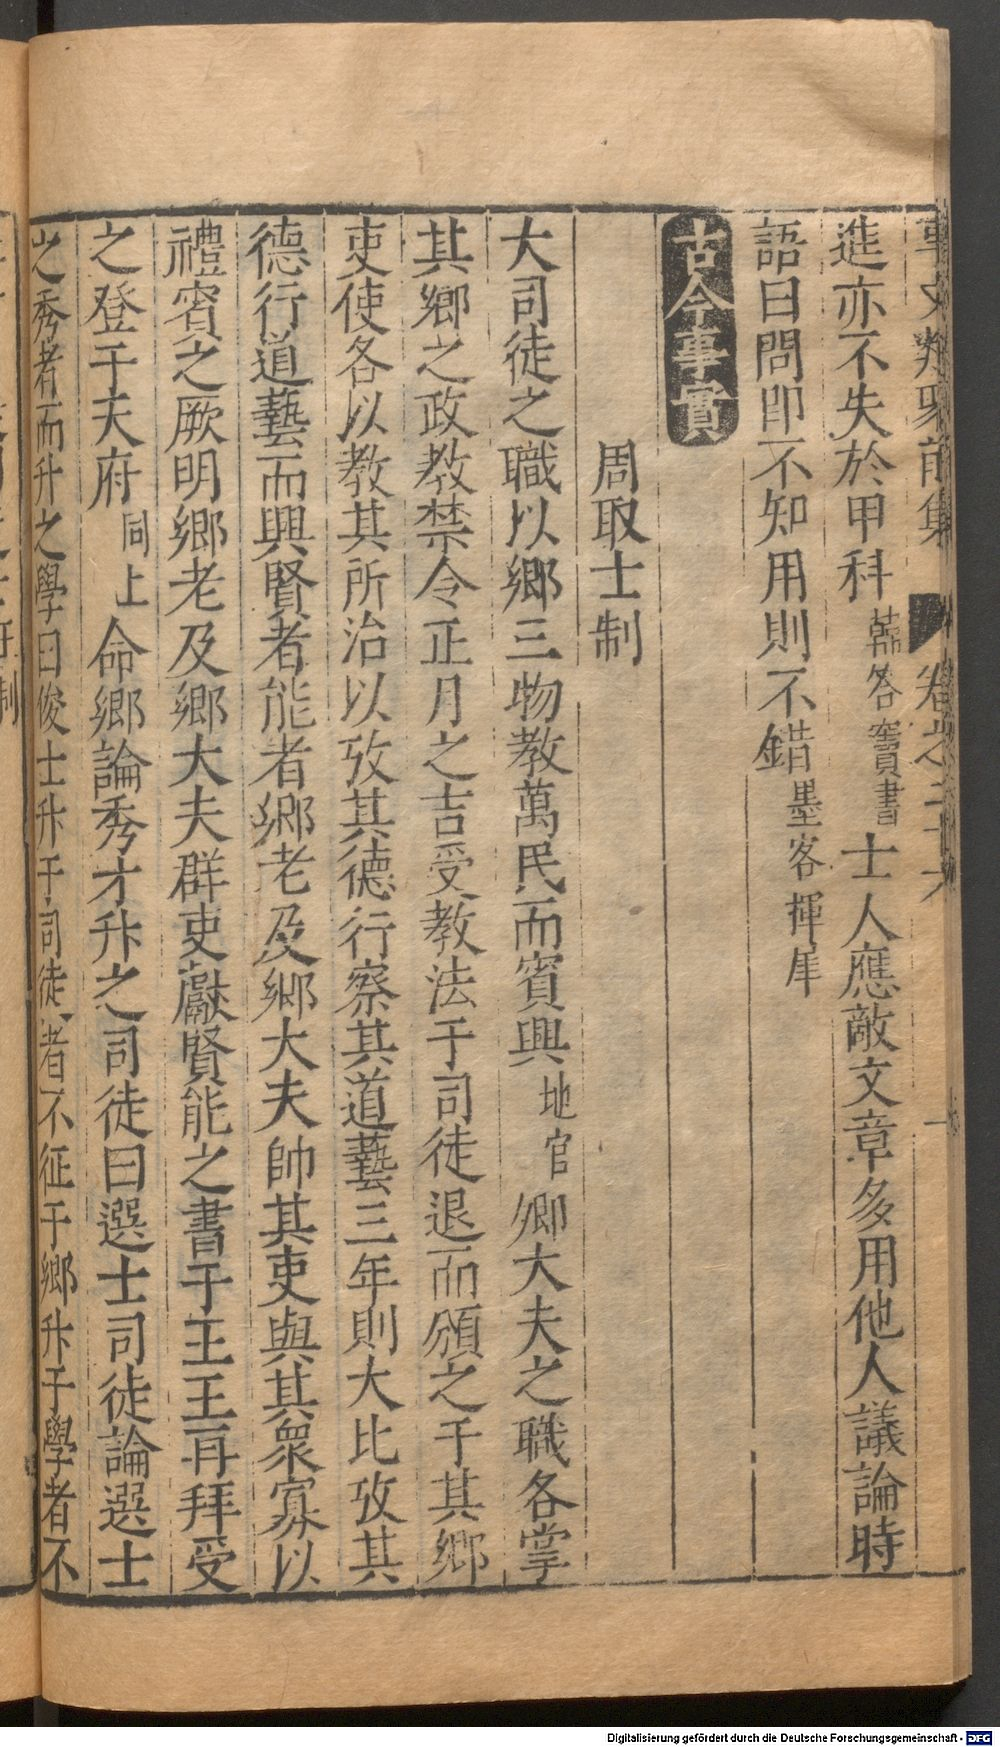 事文類聚前集 卷之二十六
進亦不失於甲科 韓答竇書 士人應敵文章多用他人議論時
語曰問即不知用則不錯 墨客揮犀
古今事實
周取士制
大司徒之職以鄉三物教萬民而賓興 地官 鄉大夫之職各掌
其鄉之政教禁令正月之吉受教法于司徒退而頒之于其鄉
吏使各以教其所治以攷其德行察其道藝三年則大比攷其
德行道藝而興賢者能者鄉老及鄉大夫帥其吏與其眾寡以
禮賓之厥明鄉老及鄉大夫群吏獻賢能之書于王王再拜受
之登于天府 同上 命鄉論秀才升之司徒曰選士司徒論選士
之秀者而升之學曰俊士升于司徒者不征于鄉升于學者不
Digitalisierung gefördert durch die Deutsche Forschungsgemeinschaft - DFG